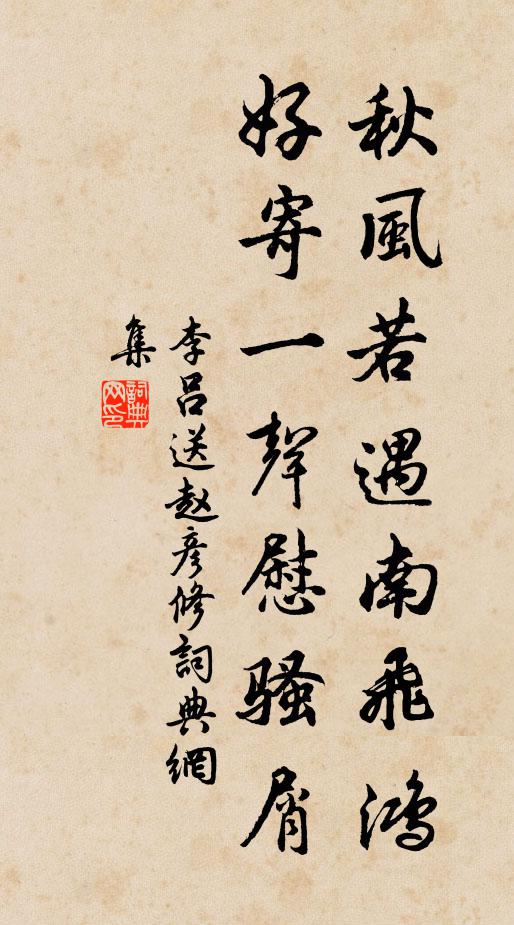 秋風若遇南飛鴻
好寄一聲慰騷屑
李吕送赵彦修詞典網
集
詞典
网印